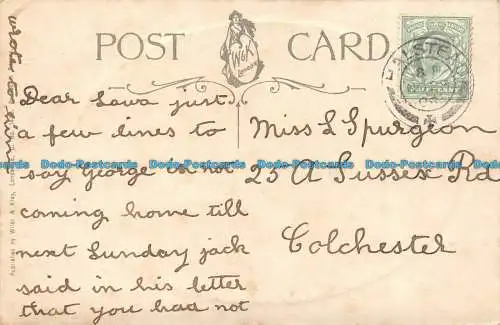 POST CARD
W&K
London
HALSTEAD
Dear Lowa just
a few lines to
say George is not
coming home till
next Sunday jack
said in his letter
that you had not
wrote to him
Miss L Spurgeon
25 A Sussex Rd
Colchester
Dodo-Postcards Dodo-Postcards Dodo-Postcards Dodo-Postcards Dodo-Postcards